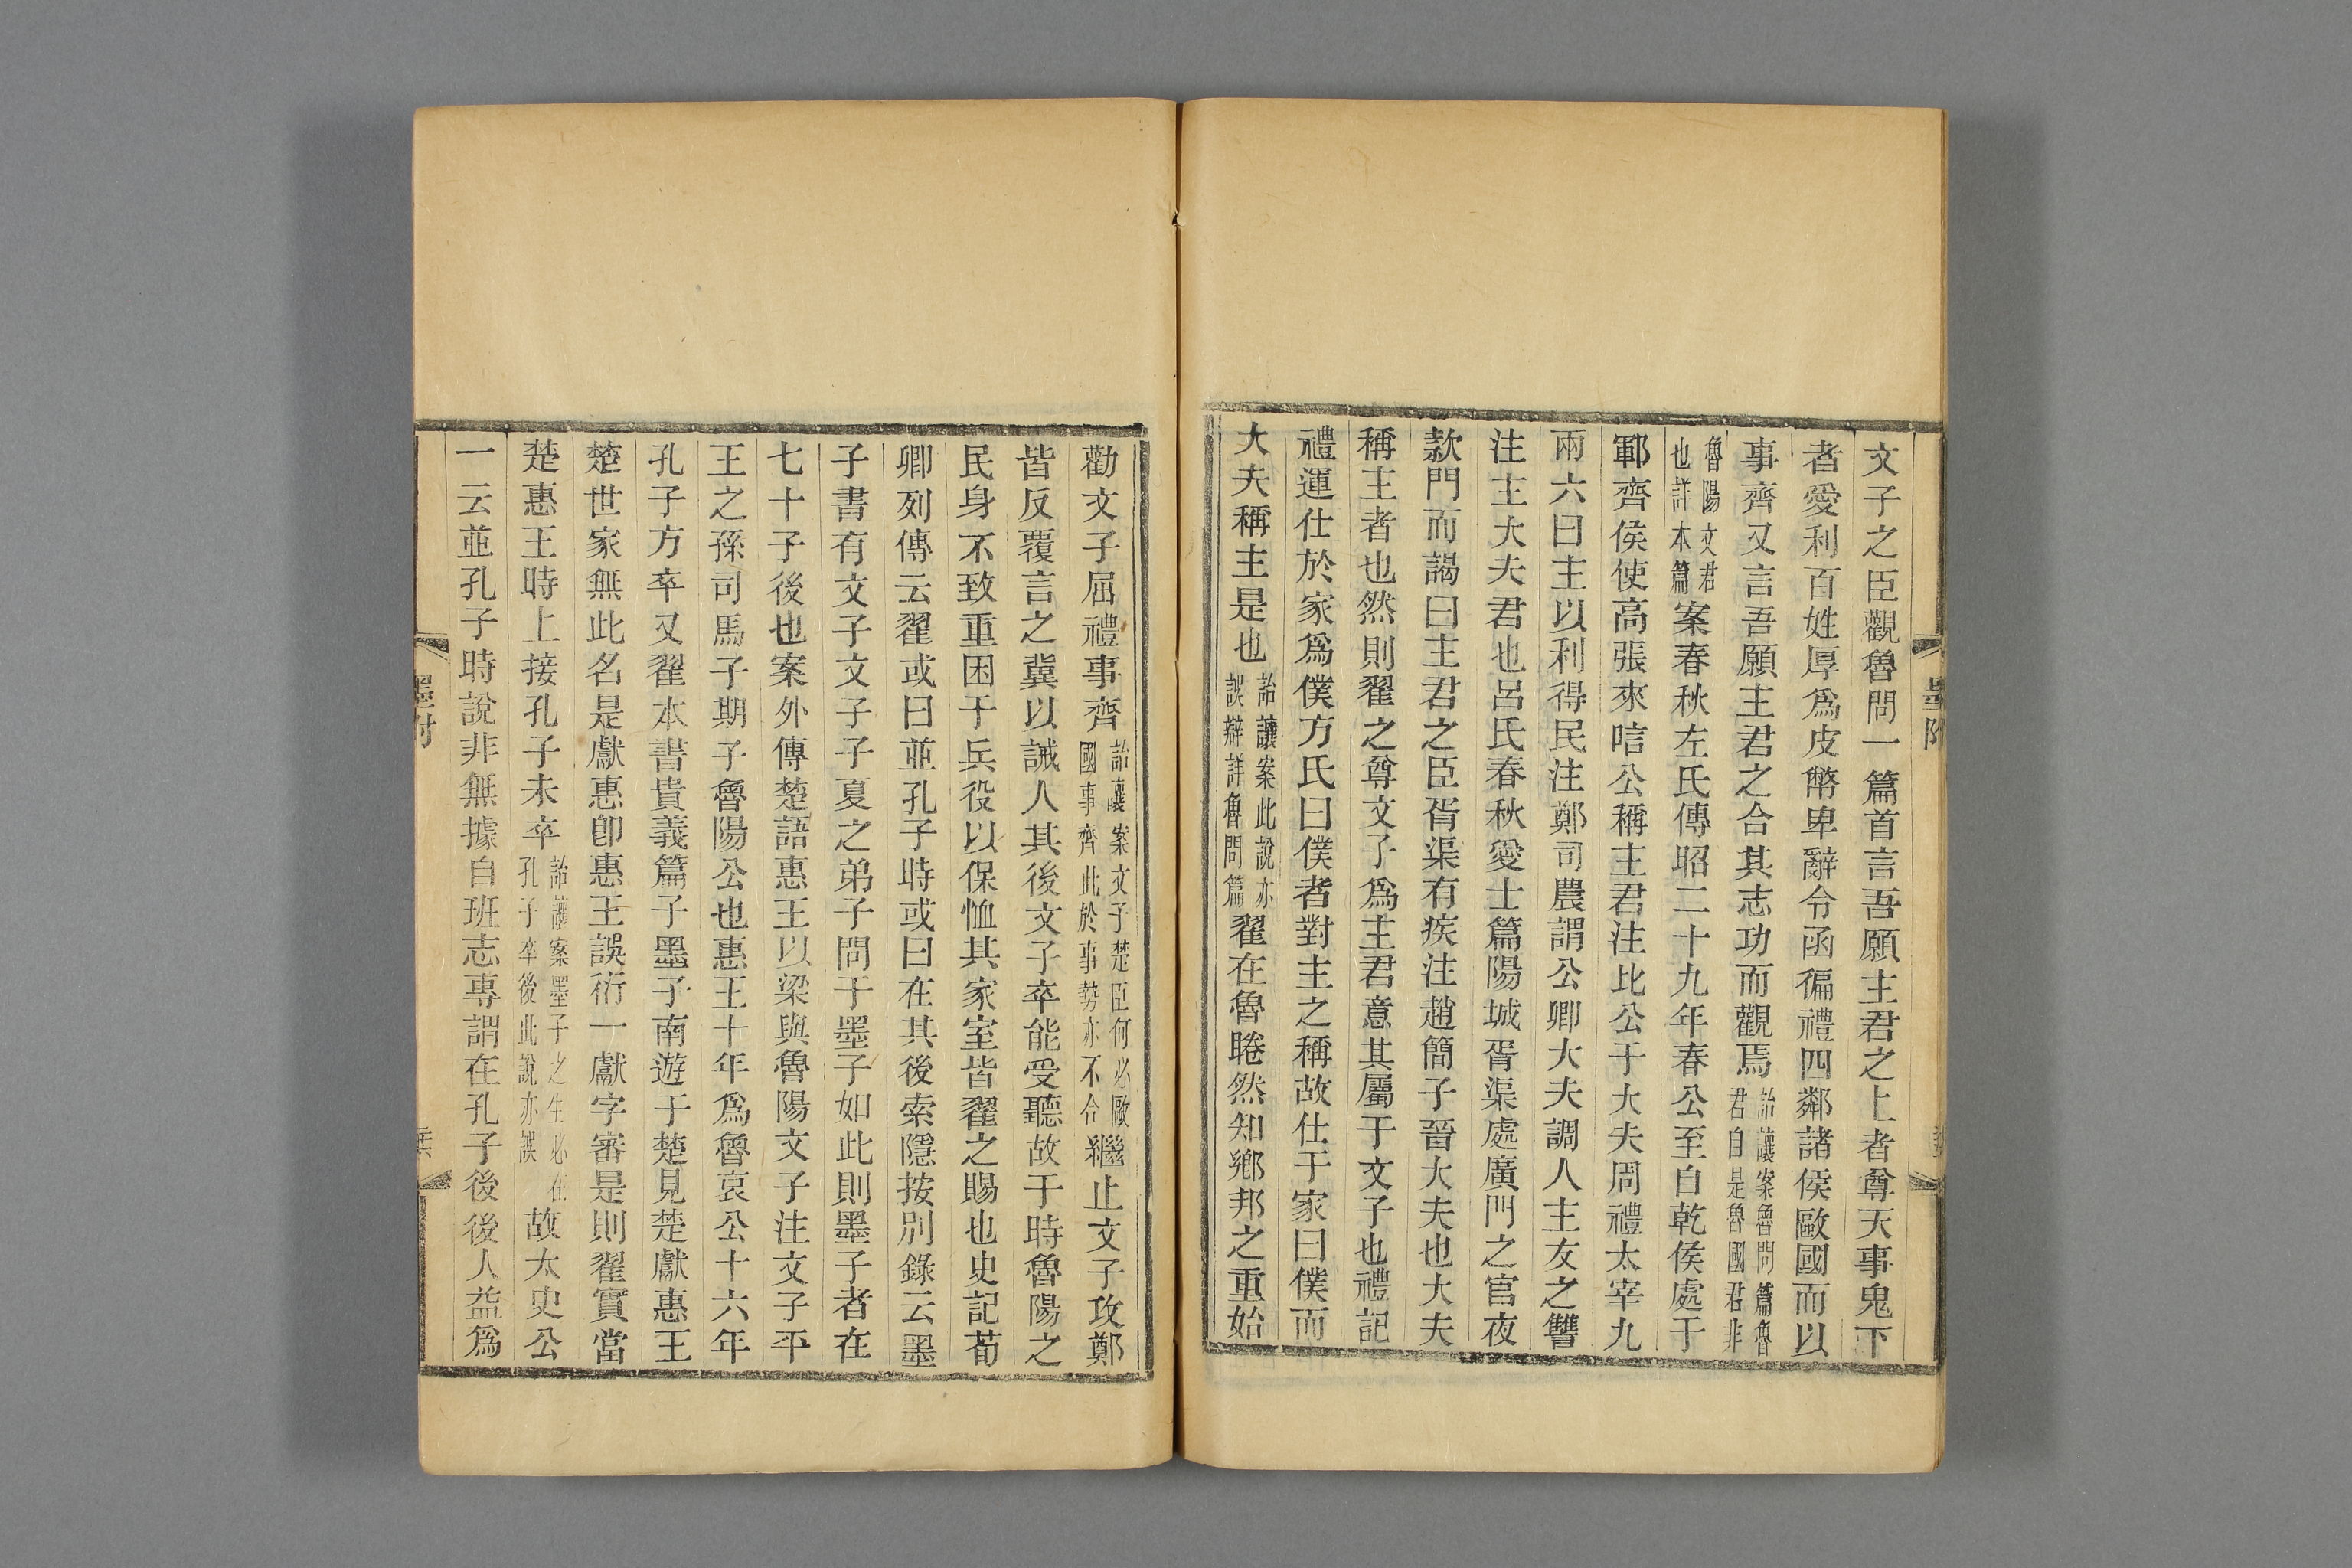 文子之臣觀魯問一篇首言吾願主君之上者尊天事鬼下
者愛利百姓厚爲皮幣卑辭令函徧禮四鄰諸侯歐國而以
事齊又言吾願主君之合其志功而觀焉詒讓案魯問篇魯君自是魯國君非
魯陽文君也詳本篇案春秋左氏傳昭二十九年春公至自乾侯處于
鄆齊侯使高張來唁公稱主君注比公于大夫周禮太宰九
兩六曰主以利得民注鄭司農謂公卿大夫調人主友之讐
注主大夫君也呂氏春秋愛士篇陽城胥渠處廣門之官夜
款門而謁曰主君之臣胥渠有疾注趙簡子晉大夫也大夫
稱主者也然則翟之尊文子爲主君意其屬于文子也禮記
禮運仕於家爲僕方氏曰僕者對主之稱故仕于家曰僕而
大夫稱主是也詒讓案此說亦誤辯詳魯問篇翟在魯睠然知鄉邦之重始
勸文子屈禮事齊詒讓案文子楚臣何必歐國事齊此於事勢亦不合繼止文子攻鄭
皆反覆言之冀以誡人其後文子卒能受聽故于時魯陽之
民身不致重困于兵役以保恤其家室皆翟之賜也史記荀
卿列傳云翟或曰並孔子時或曰在其後索隱按別錄云墨
子書有文子文子子夏之弟子問于墨子如此則墨子者在
七十子後也案外傳楚語惠王以梁與魯陽文子注文子平
王之孫司馬子期子魯陽公也惠王十年爲魯哀公十六年
孔子方卒又翟本書貴義篇子墨子南遊于楚見楚獻惠王
楚世家無此名是獻惠卽惠王誤衍一獻字審是則翟實當
楚惠王時上接孔子未卒詒讓案墨子之生必在孔子卒後此說亦誤故太史公
一云並孔子時說非無據自班志專謂在孔子後後人益爲
墨附